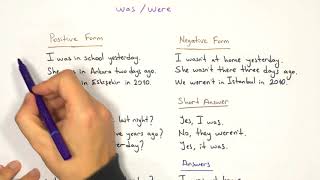 was / were
Positive Form
I was in school yesterday.
She was in Ankara two days ago.
in Eskişehir in 2010.
Negative Form
I wasn't at home yesterday.
She wasn't there three days ago.
We weren't in Istanbul in 2010.
last night?
years ago?
yesterday?
Short Answer
Yes, I was.
No, they weren't.
Yes, it was.
Answers